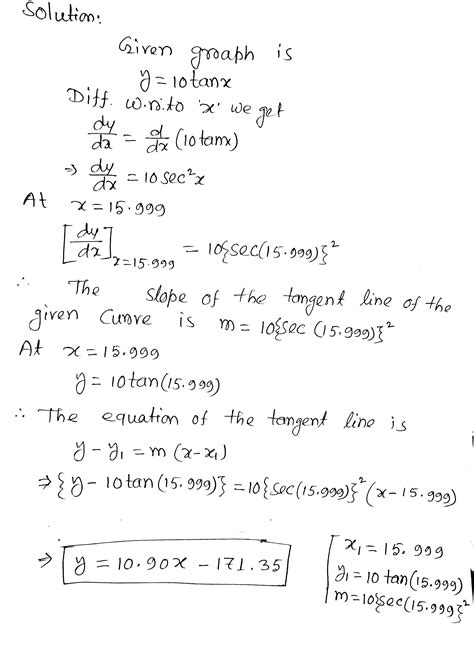 Solution:
Given graph is
y = 10tanx
Diff. w.r.to 'x' we get
dy/dx = d/dx (10tanx)
⇒ dy/dx = 10 sec²x
At x = 15.999
[dy/dx]x=15.999 = 10{sec(15.999)}²
∴ The slope of the tangent line of the
given curve is m = 10{sec (15.999)}²
At x = 15.999
y = 10tan(15.999)
∴ The equation of the tangent line is
y - y₁ = m (x-x₁)
⇒ {y - 10tan(15.999)} = 10{sec(15.999)}² (x - 15.999)
⇒ y = 10.90x - 171.35
x₁ = 15.999
y₁ = 10 tan(15.999)
m = 10{sec(15.999}²